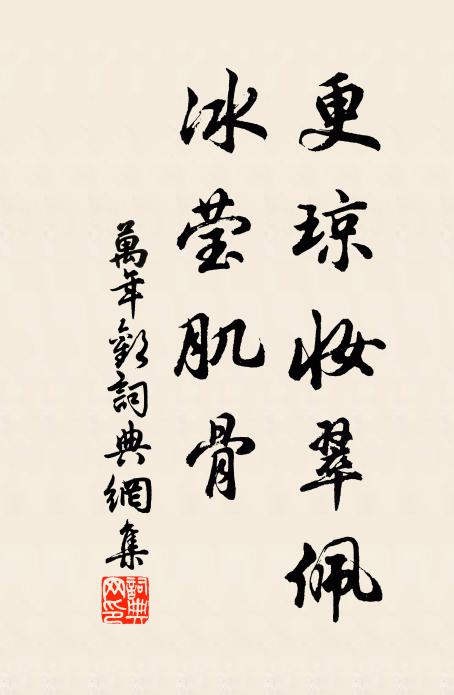 更琼妆翠佩
冰莹肌骨
萬年歡詞典網集
詞典网印